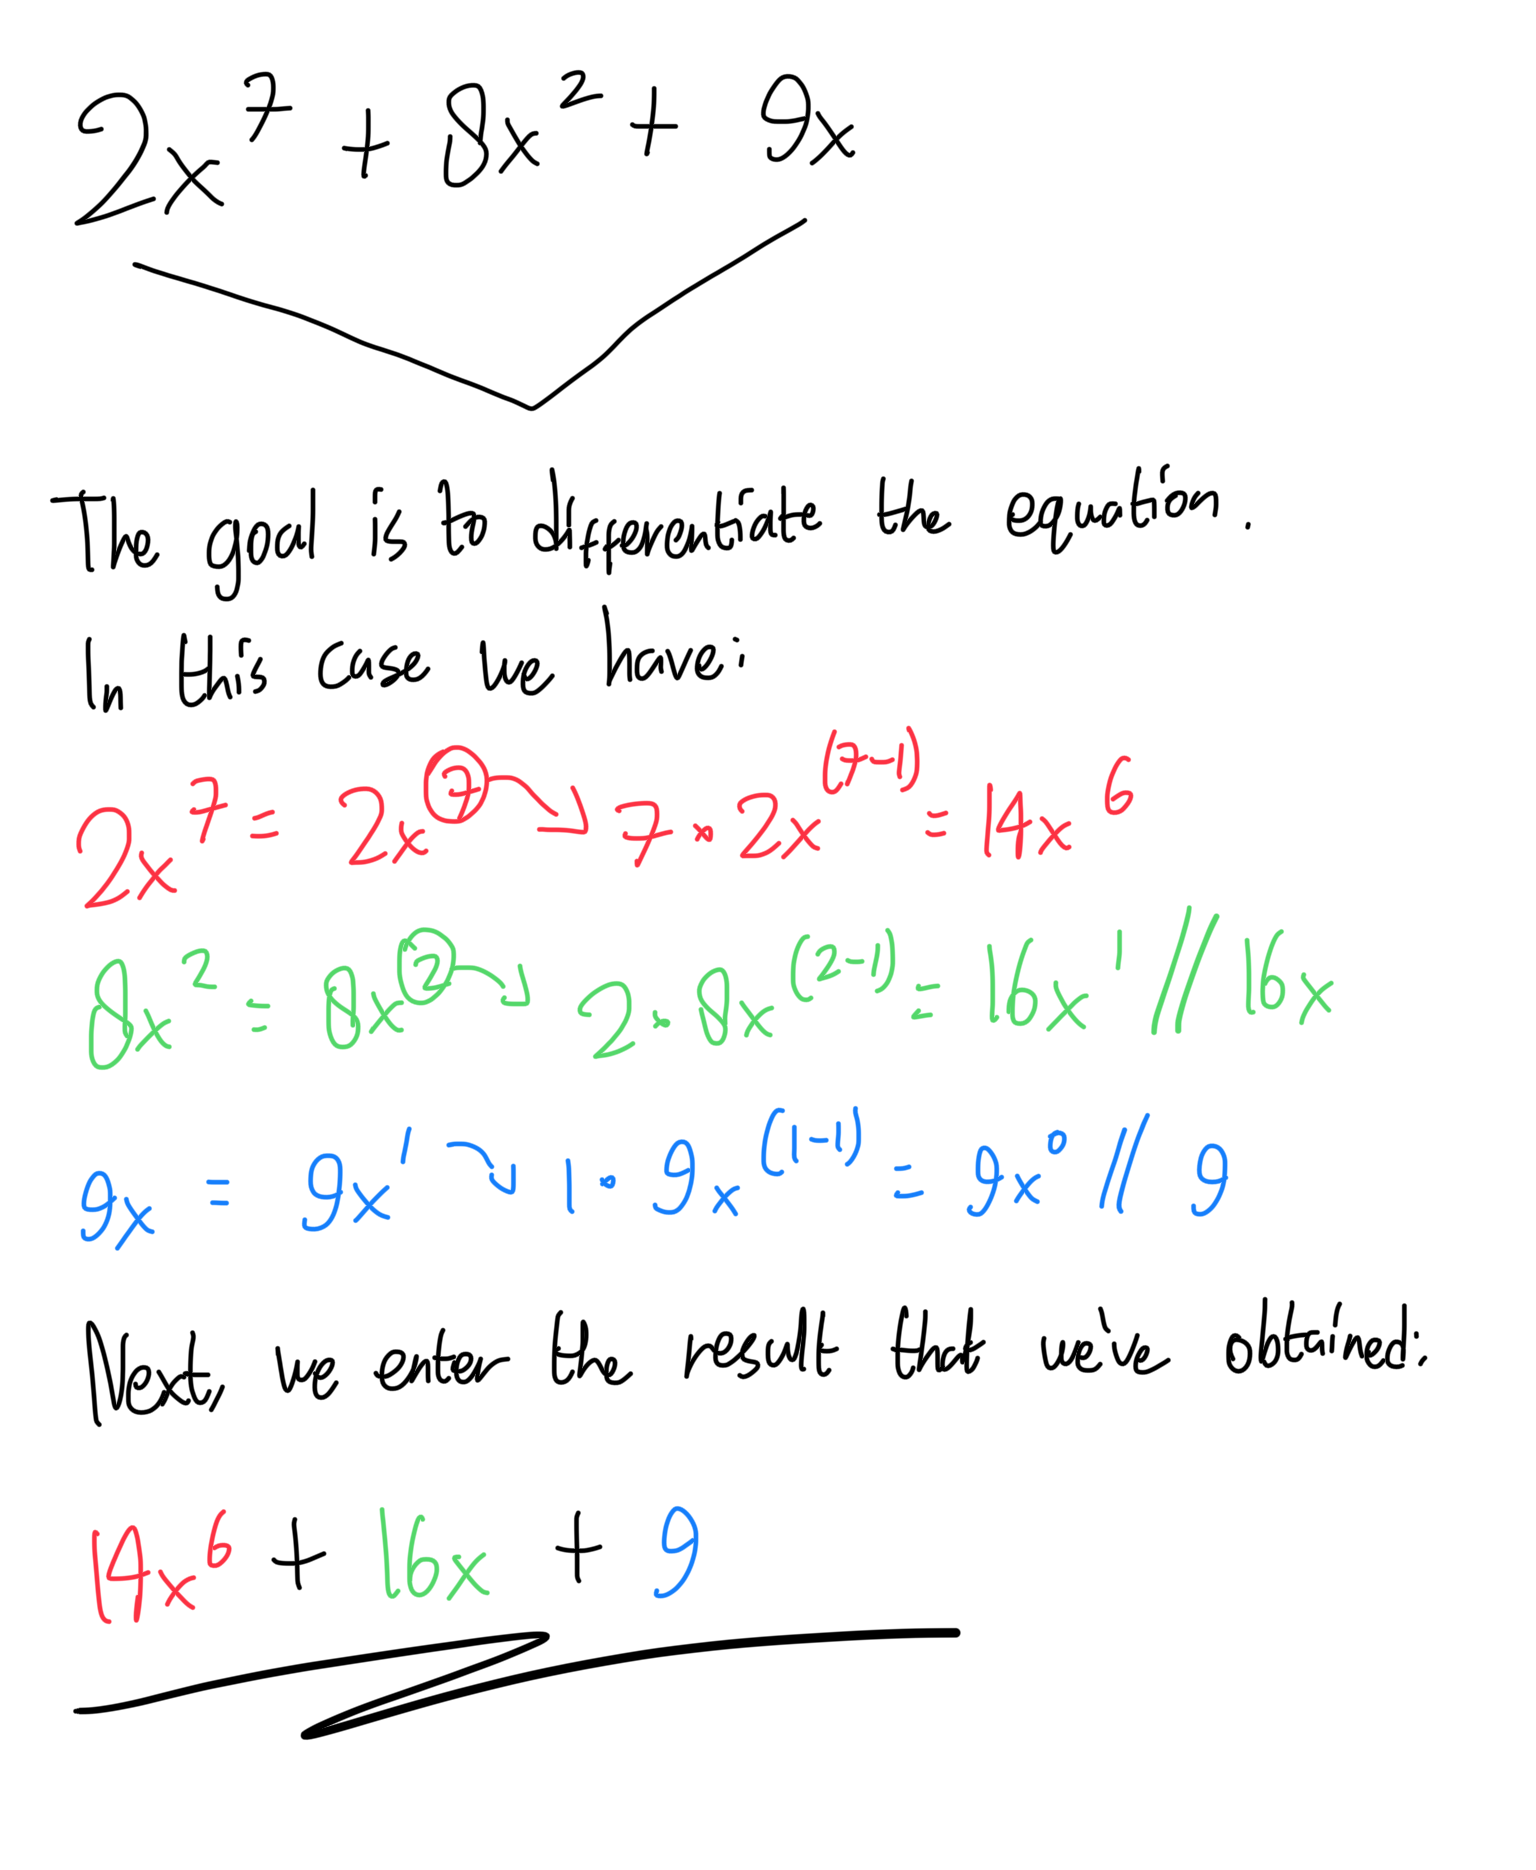 2x⁷ + 8x² + 9x
The goal is to differentiate the equation.
In this case we have:
2x⁷ = 2x⁷ → 7 · 2x⁽⁷⁻¹⁾ = 14x⁶
8x² = 8x² → 2 · 8x⁽²⁻¹⁾ = 16x¹ // 16x
9x = 9x¹ → 1 · 9x⁽¹⁻¹⁾ = 9x⁰ // 9
Next, we enter the result that we've obtained:
14x⁶ + 16x + 9